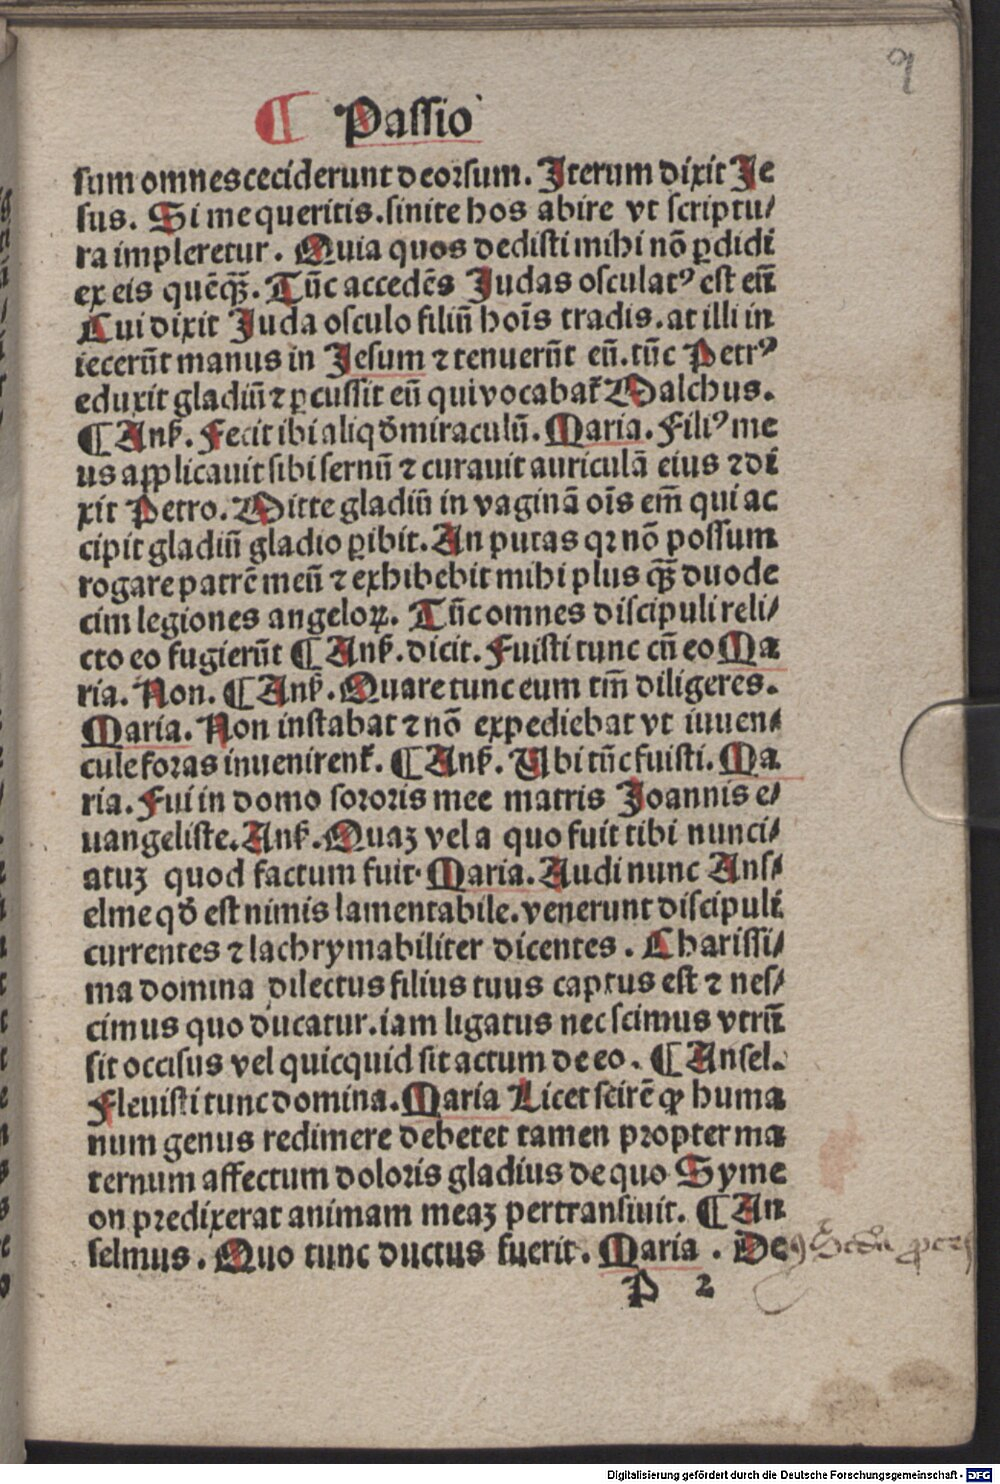 9
¶ Passio
sum omnes ceciderunt deorsum. Iterum dixit Je
sus. Si me queritis. sinite hos abire vt scriptu/
ra impleretur. Quia quos dedisti mihi nō ꝑdidi
ex eis quēqꝫ̄. Tūc accedēs Judas osculatꝰ est eū
Cui dixit Juda osculo filiū hoīs tradis. at illi in
iecerūt manus in Jesum ⁊ tenuerūt eū. tūc Petrꝰ
eduxit gladiū ⁊ ꝑcussit eū qui vocabat᷑ Malchus.
¶ Ans̄. Fecit ibi aliqđ miraculū. Maria. Filiꝰ me
us applicauit sibi seruū ⁊ curauit auriculā eius ⁊ di
xit Petro. Mitte gladiū in vaginā oīs em̄ qui ac
cipit gladiū gladio ꝑibit. An putas qꝛ nō possum
rogare patrē meū ⁊ exhibebit mihi plus qꝫ̄ duode
cim legiones angeloꝝ. Tūc omnes discipuli reli/
cto eo fugierūt ¶ Ans̄. dicit. Fuisti tunc cū eo Ma
ria. Non. ¶ Ans̄. Quare tunc eum tm̄ diligeres.
Maria. Non instabat ⁊ nō expediebat vt iuuen/
cule foras inuenirent᷑. ¶ Ans̄. Ubi tūc fuisti. Ma
ria. Fui in domo sororis mee matris Joannis e/
uangeliste. Ans̄. Quaꝫ vel a quo fuit tibi nunci/
atuꝫ quod factum fuit. Maria. Audi nunc Ans/
elme qđ est nimis lamentabile. venerunt discipuli
currentes ⁊ lachrymabiliter dicentes. Charissi/
ma domina dilectus filius tuus captus est ⁊ nes/
cimus quo ducatur. iam ligatus nec scimus vtrū
sit occisus vel quicquid sit actum de eo. ¶ Ansel.
Fleuisti tunc domina. Maria Licet scirē ꝙ huma
num genus redimere debetet tamen propter ma
ternum affectum doloris gladius de quo Syme
on predixerat animam meaꝫ pertransiuit. ¶ An
selmus. Quo tunc ductus fuerit. Maria. De
P 2
Digitalisierung gefördert durch die Deutsche Forschungsgemeinschaft - DFG